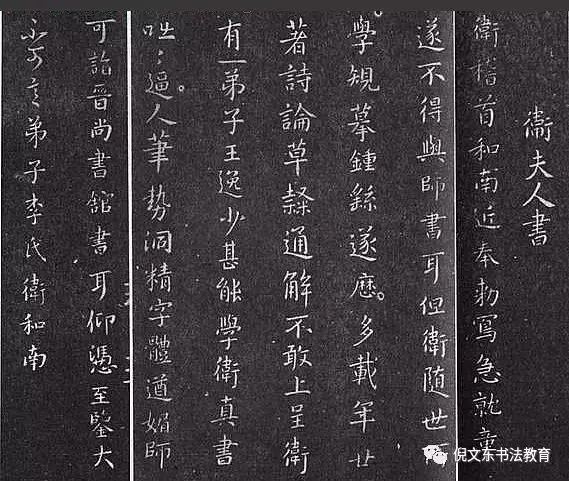 衞夫人書
衞稽首和南近奉勅寫急就章
遂不得與師書耳但衞隨世所
學規摹鍾繇遂歷多載年廿
著詩論草隸通解不敢上呈衞
有一弟子王逸少甚能學衞真書
咄咄逼人筆勢洞精字體遒媚師
可詣晉尚書館書耳仰憑至鑒大
不可言弟子李氏衞和南
倪文东书法教育